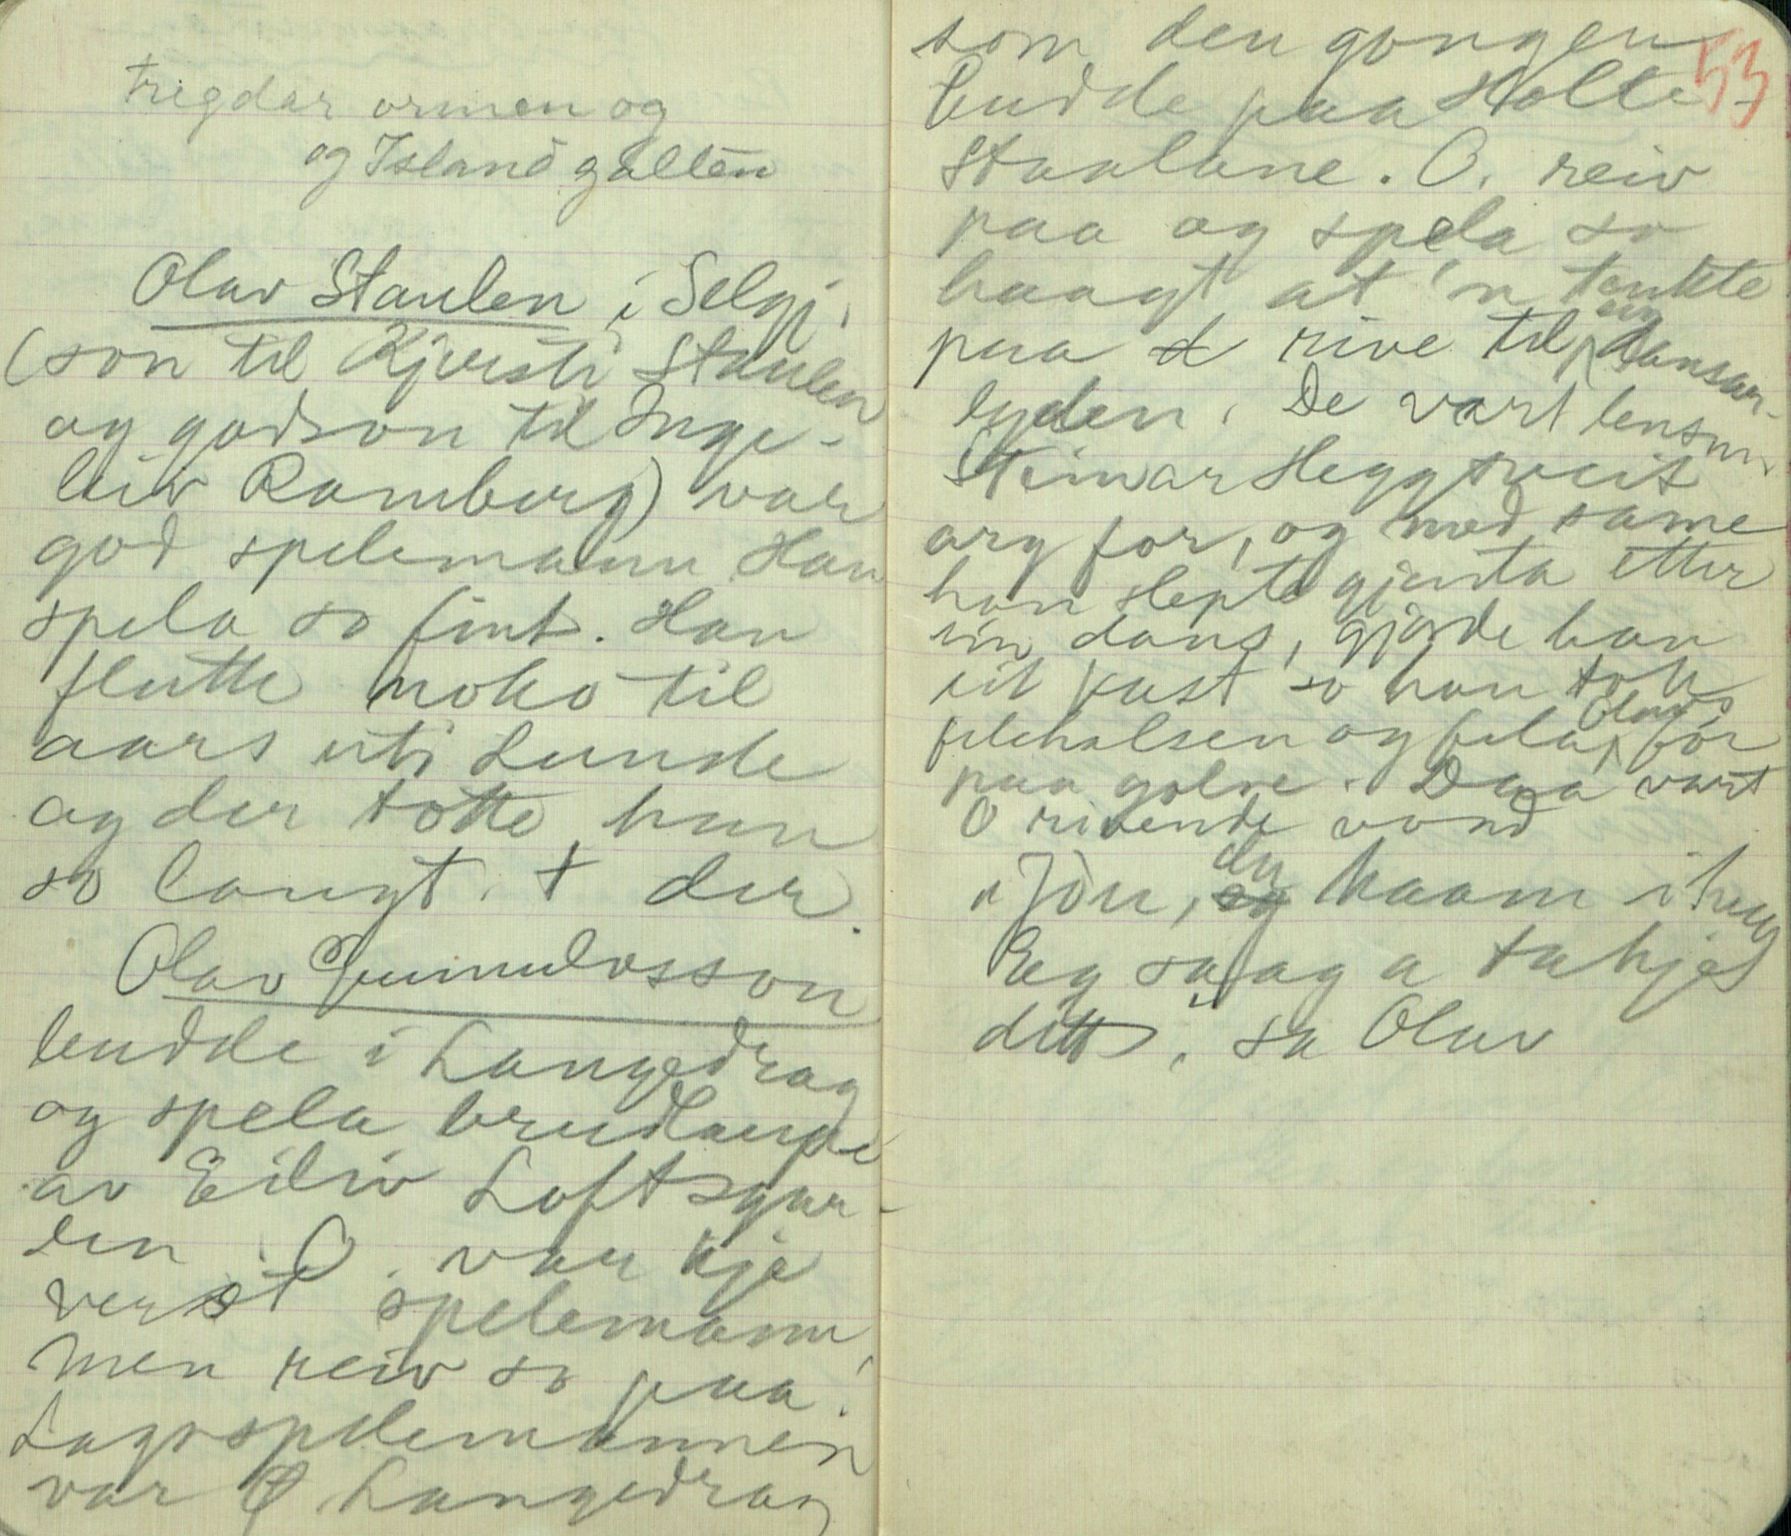 Tregdar ormen og
og Island galten
Olav Staulen i Selgj.
(son til Kjersti Staulen
og godson til Inge-
leiv Ramberg) var
god spelemann Han
spela so fint. Han
flutte noko til
aars uti Lunde
og der totte han
so langt. † der.
Olav Gunnulvsson
budde i Langedrag
og spela brudlaupe
av Eiliv Loftsgar-
den. O. var kje
verst spelemann,
men reiv so paa.
Lagsspelemannen
var O Langedrag
53
som den gongen
budde paa Holte-
Staulane. O. reiv
paa og spela so
haagt at 'n tenkte
paa å rive til seg dansar-
lyden. De vart lensm.
Steinar Heggtveit
arg for, og med same
han slepte gjenta etter
ein dans, gjorde han
eit kast so han tok
felehalsen og fela Olavs for
paa golve. Daa vart
O rivende vond
"Jon, du kaam i hug
Eg saag a tu kjø
ditt", sa Olav